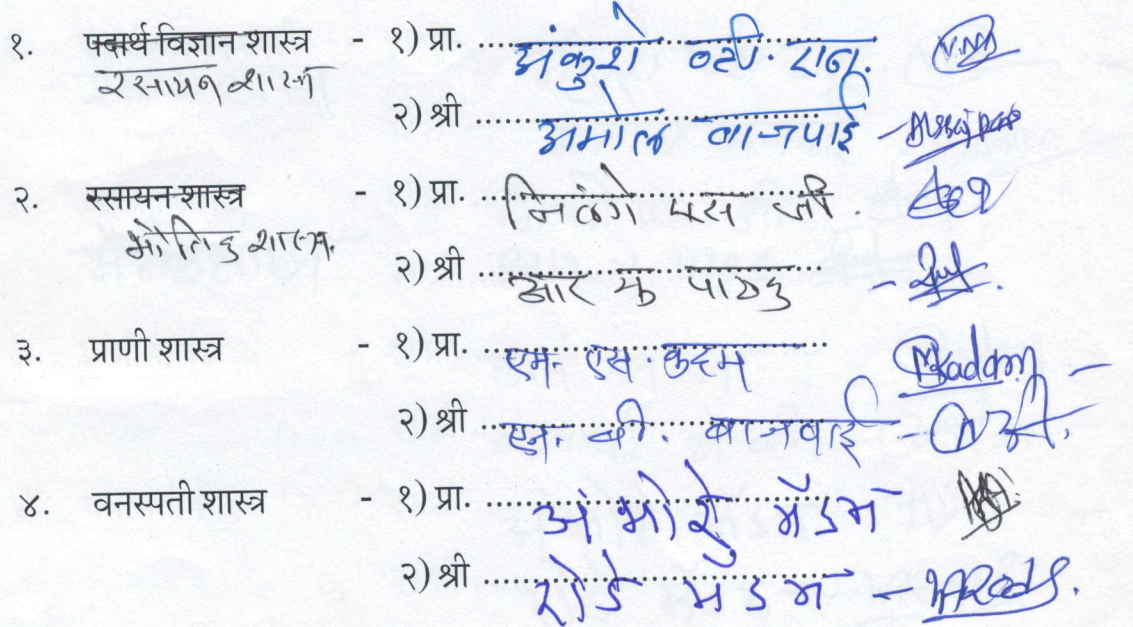 १. पदार्थ विज्ञान शास्त्र - १) प्रा. अंकुशे व्ही. एन.
रसायन शास्त्र
२) श्री अमोल वाजपाई
२. रसायन शास्त्र - १) प्रा. निलंगे एस जी.
भौतिक शास्त्र.
२) श्री आर के पाठक
३. प्राणी शास्त्र - १) प्रा. एम. एस. कदम Mkadam
२) श्री एन. बी. बाजपाई
४. वनस्पती शास्त्र - १) प्रा. अंभोरे मॅडम
२) श्री रोडे मॅडम